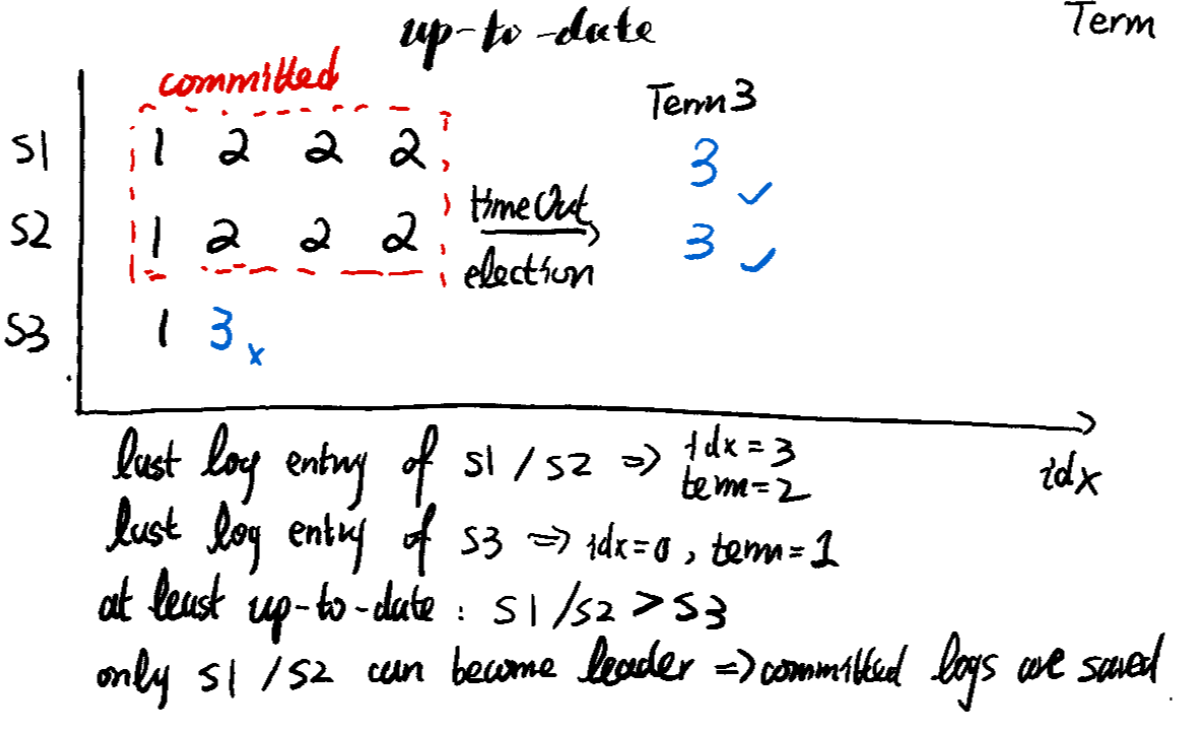 up-to-date
Term
committed
Term 3
S1 1 2 2 2 3
S2 1 2 2 2 timeOut 3
election
S3 1 3 x
last log entry of S1 / S2 => idx = 3
term = 2
idx
last log entry of S3 => idx = 0 , term = 1
at least up-to-date : S1 / S2 > S3
only S1 / S2 can become leader => committed logs are saved